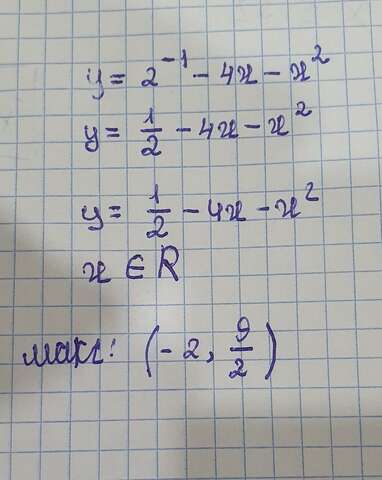 y = 2⁻¹ - 4x - x²
y = 1/2 - 4x - x²
y = 1/2 - 4x - x²
x ∈ R
макс: (-2, 9/2)